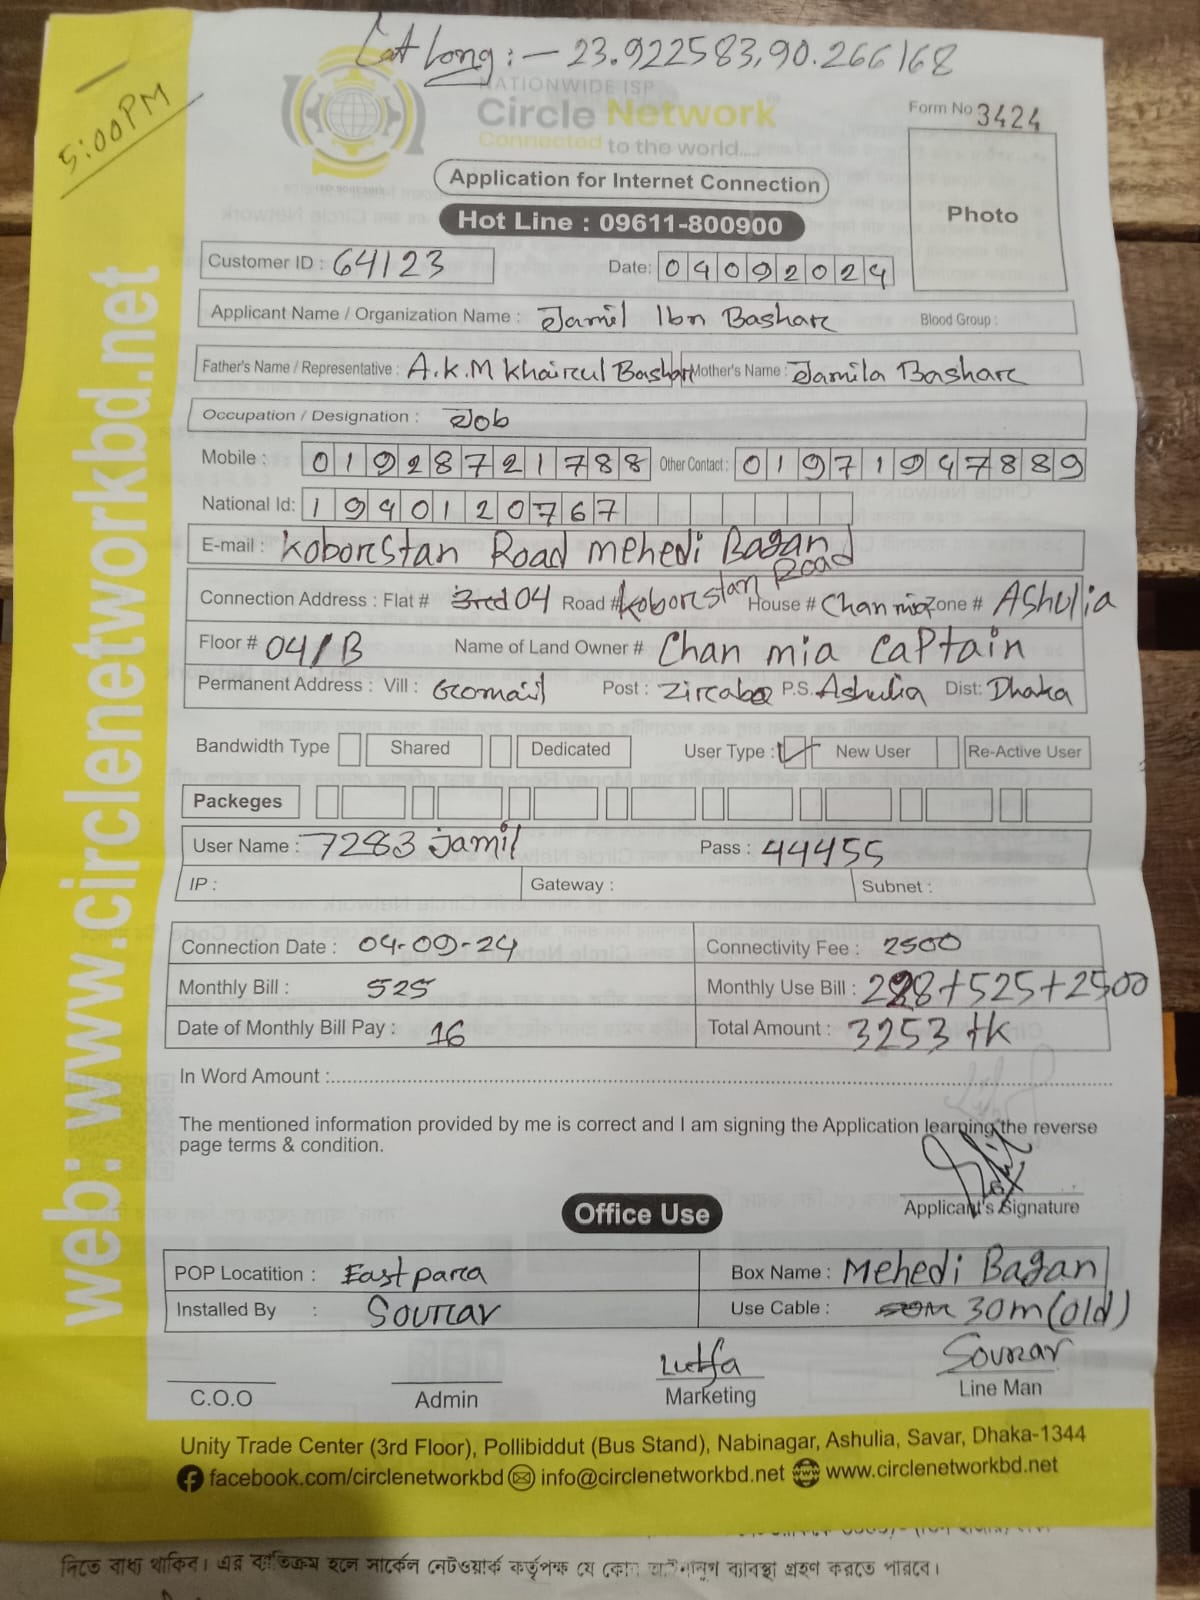 Lat Long :- 23.922583,90.266168
5:00PM
NATIONWIDE ISP
Circle Network
Connected to the world.....
Form No 3424
Application for Internet Connection
Photo
Hot Line : 09611-800900
Customer ID : 64123 Date: 04092024
Applicant Name / Organization Name : Jamil Ibn Bashar Blood Group :
Father's Name / Representative : A.K.M Khairul Bashar Mother's Name : Jamila Bashar
Occupation / Designation : Job
Mobile : 01928721788 Other Contact : 01971947889
National Id: 1940120767
E-mail : Koborstan Road Mehedi Bagan
Connection Address : Flat # 3rd 04 Road # Koborstan Road House # Chan mia Zone # Ashulia
Floor # 04/B Name of Land Owner # Chan mia Captain
Permanent Address : Vill : Post : Zirabo P.S. Ashulia Dist: Dhaka
Bandwidth Type Shared Dedicated User Type : New User Re-Active User
Packeges
User Name : 7283 Jamil Pass : 44455
IP : Gateway : Subnet :
Connection Date : 04-09-24 Connectivity Fee : 2500
Monthly Bill : 525 Monthly Use Bill : 228+525+2500
Date of Monthly Bill Pay : 16 Total Amount : 3253 tk
In Word Amount :
The mentioned information provided by me is correct and I am signing the Application learning the reverse
page terms & condition.
Applicant's Signature
Office Use
POP Locatition : East para Box Name : Mehedi Bagan
Installed By : Sourav Use Cable : 50m 30m (old)
Lutfa Sourav
C.O.O Admin Marketing Line Man
Unity Trade Center (3rd Floor), Pollibiddut (Bus Stand), Nabinagar, Ashulia, Savar, Dhaka-1344
facebook.com/circlenetworkbd info@circlenetworkbd.net www.circlenetworkbd.net
web: www.circlenetworkbd.net
দিতে বাধ্য থাকিব। এর ব্যতিক্রম হলে সার্কেল নেটওয়ার্ক কর্তৃপক্ষ যে কোন আইনানুগ ব্যবস্থা গ্রহণ করতে পারবে।